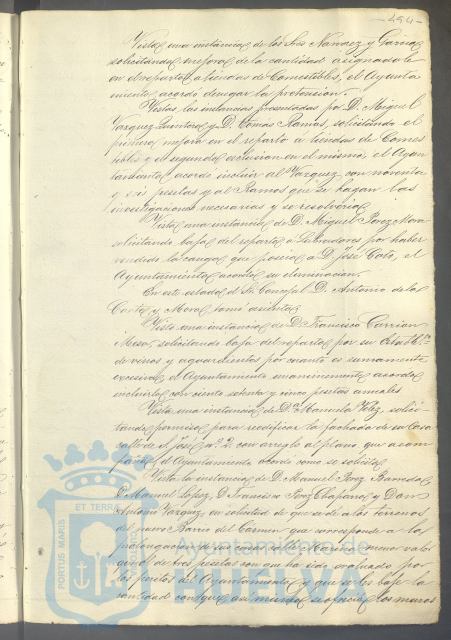 -494-
Vista una instancia de los Sres Narvaez y Garcia
solicitando mejora de la cantidad asignadole
en el reparto a tiendas de Comestibles, el Ayunta
miento acordó denegar la pretension.
Vistas las instancias presentadas por D. Miguel
Vazquez Quintero y D. Tomás Ramos, solicitando el
primero mejora en el reparto a tiendas de Comes
tibles y el segundo exclusion en el mismo, el Ayun
tamiento acordó incluir al Vazquez con noventa
y seis pesetas y al Ramos que se hagan las
investigaciones necesarias y se resolverá
Vista una instancia de D. Miguel Perez Mora
solicitando baja del reparto a Labradores por haber
vendido la que poseia a D. José Coto, el
Ayuntamiento acordó su eliminacion.
En este estado el Sr. Concejal D. Antonio de la
Corte y Mora tomó asiento
Vista una instancia de D. Francisco Carrion
Mesa, solicitando baja del reparto por su Establto.
de vinos y aguardientes por cuanto es sumamente
excesiva el Ayuntamiento unanimemente acordó
incluirlo con ciento setenta y cinco pesetas anuales
Vista una instancia de Da. Manuela Velez, solici-
tando permiso para reedificar la fachada de su Casa
calle de S. José no. 2. con arreglo al plano, que acom
paña, el Ayuntamiento acordó como se solicita
Vista la instancia de D. Manuel Perez Barreda
D. Manuel Lopez, D. Francisco Perez Chaparro y Don
Antonio Vazquez, en solicitud de que se de a los terrenos
del nuevo Barrio del Carmen que corresponde a la
prolongacion de la calle de menor valor
que el de tres pesetas con que ha sido evaluado por
los peritos del Ayuntamiento, y que se les baje la
cantidad conque asi mismo se ofrecia los muros
PORTUS MARIS ET TERRAE
Ayuntamiento de
HUELVA